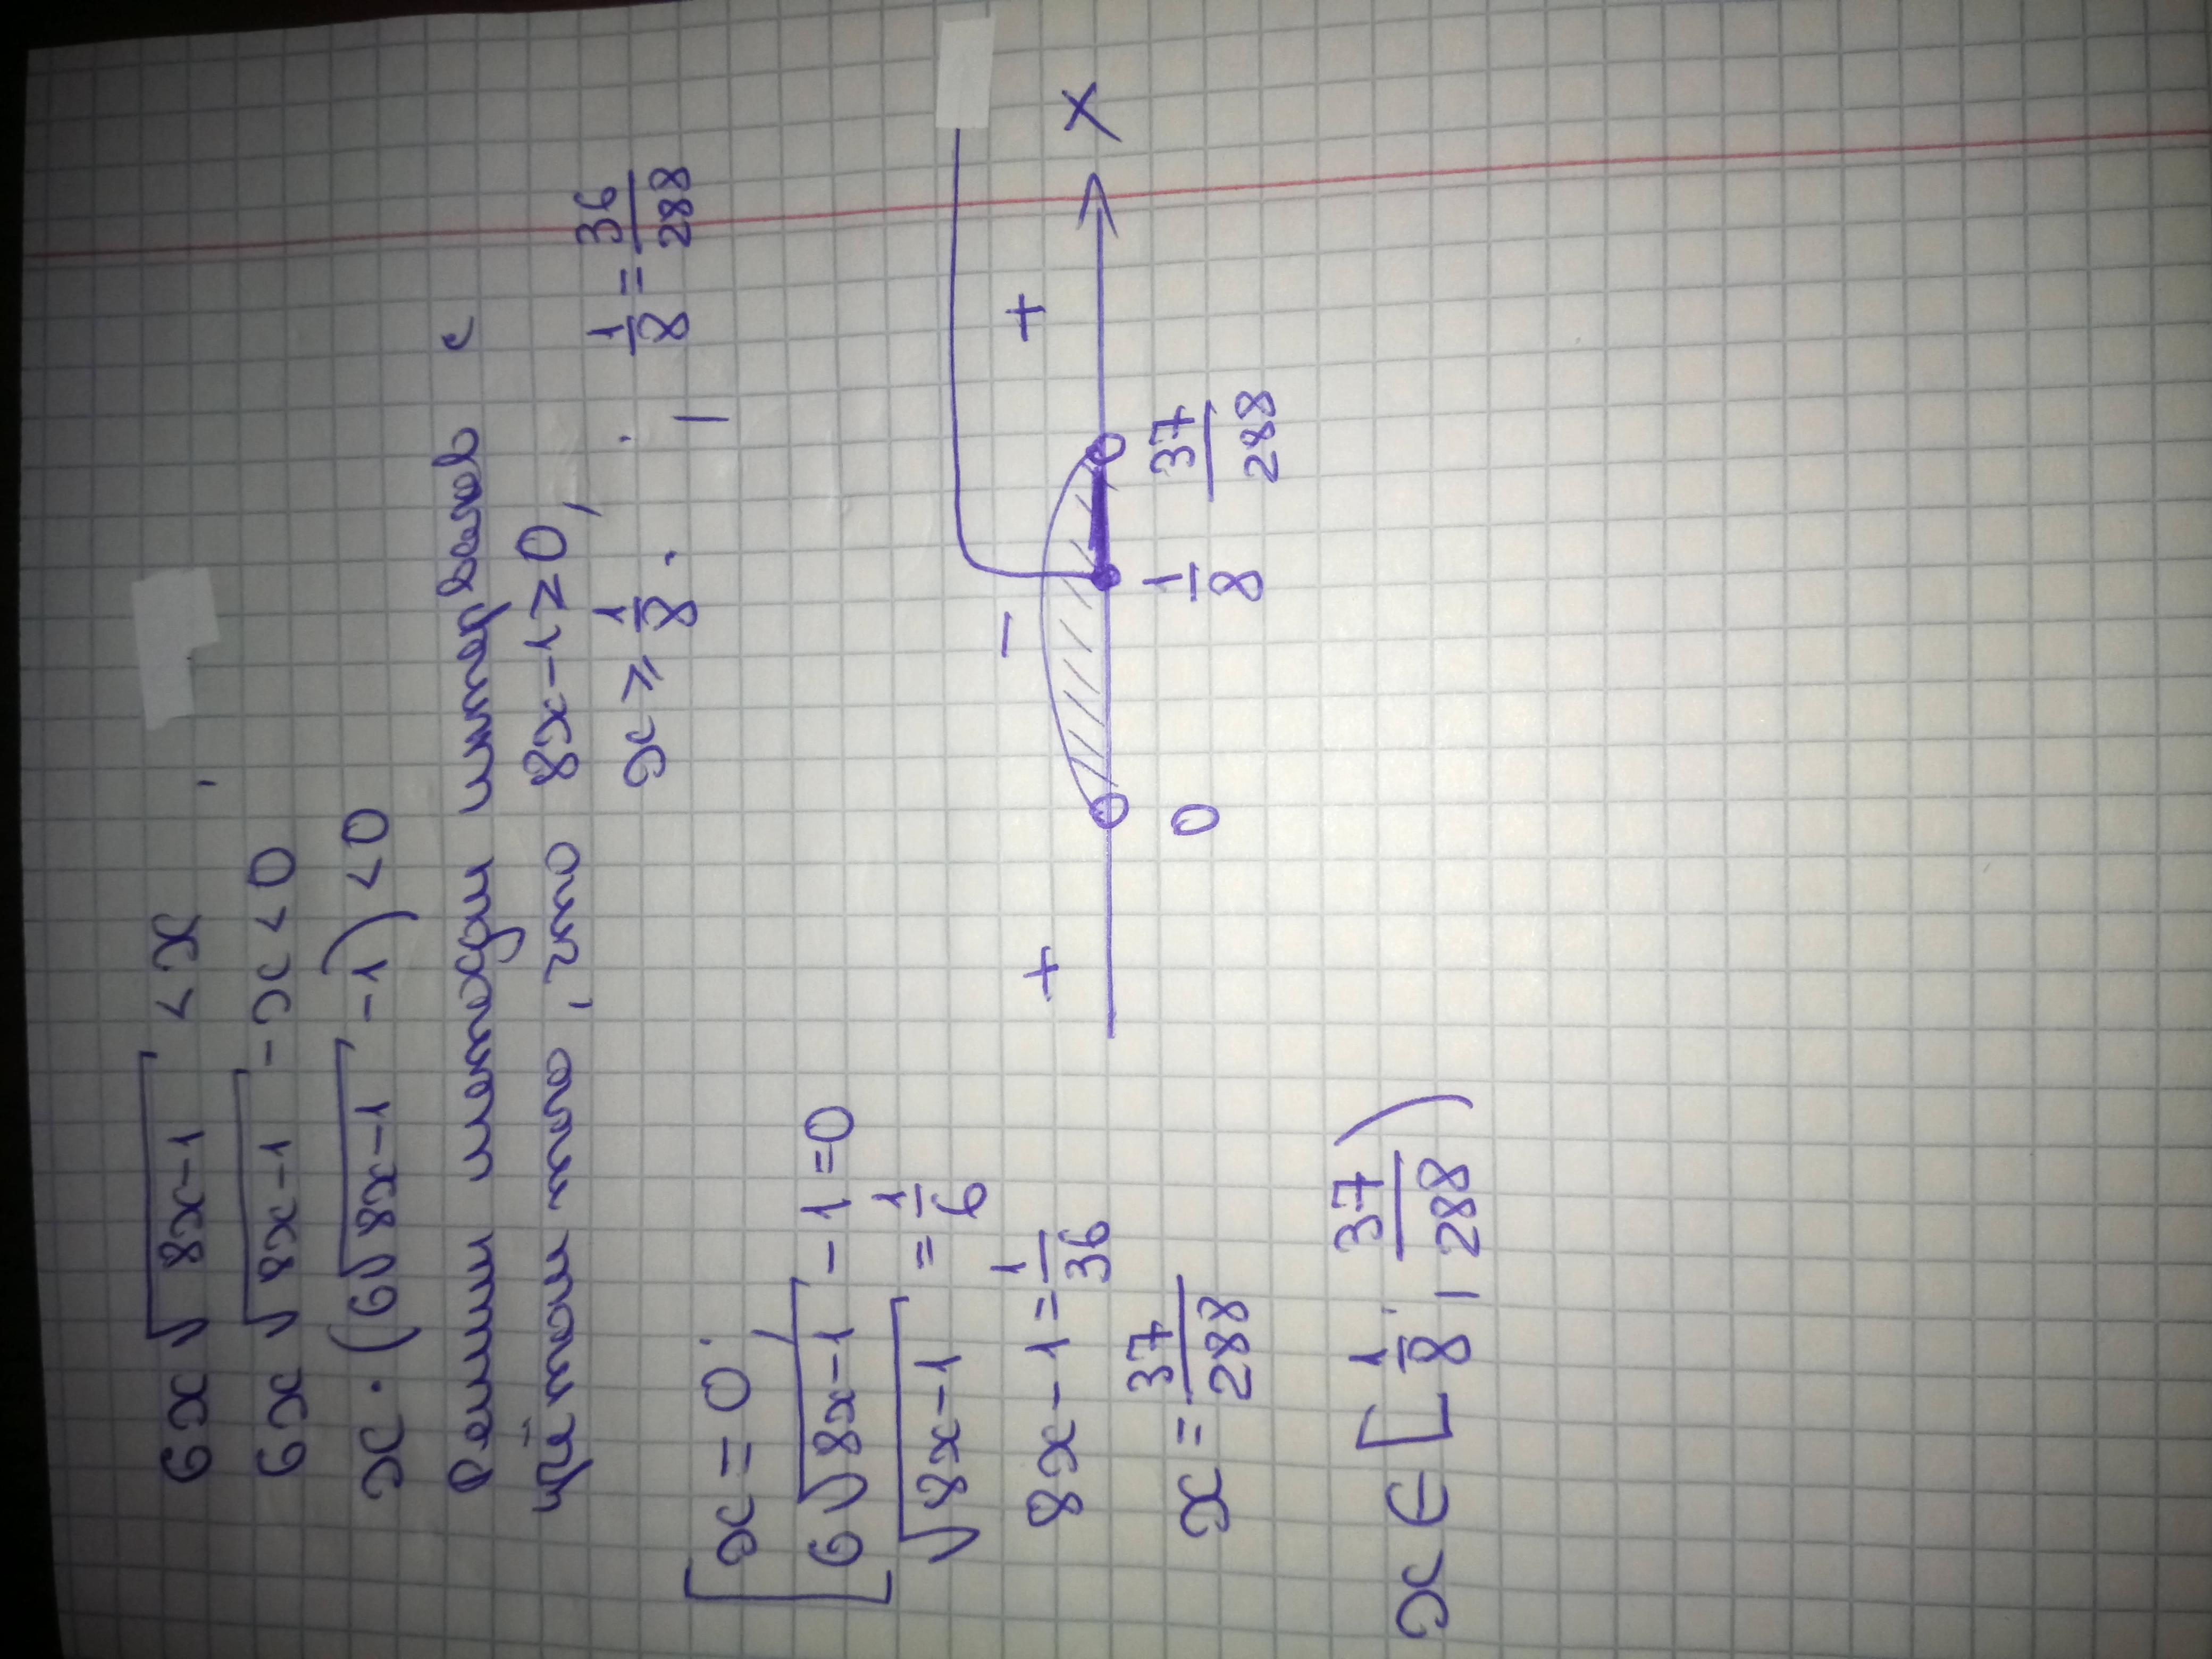 6x√(8x-1) < x
6x√(8x-1) - x < 0
x · (6√(8x-1) - 1) < 0
Решим методом интервалов с
учётом, что 8x-1 ≥ 0,
x ≥ 1/8. 1/8 = 36/288
[ x = 0
[ 6√(8x-1) - 1 = 0
√(8x-1) = 1/6
8x - 1 = 1/36
x = 37/288
+ - +
0 1/8 37/288 x
x ∈ [1/8; 37/288)